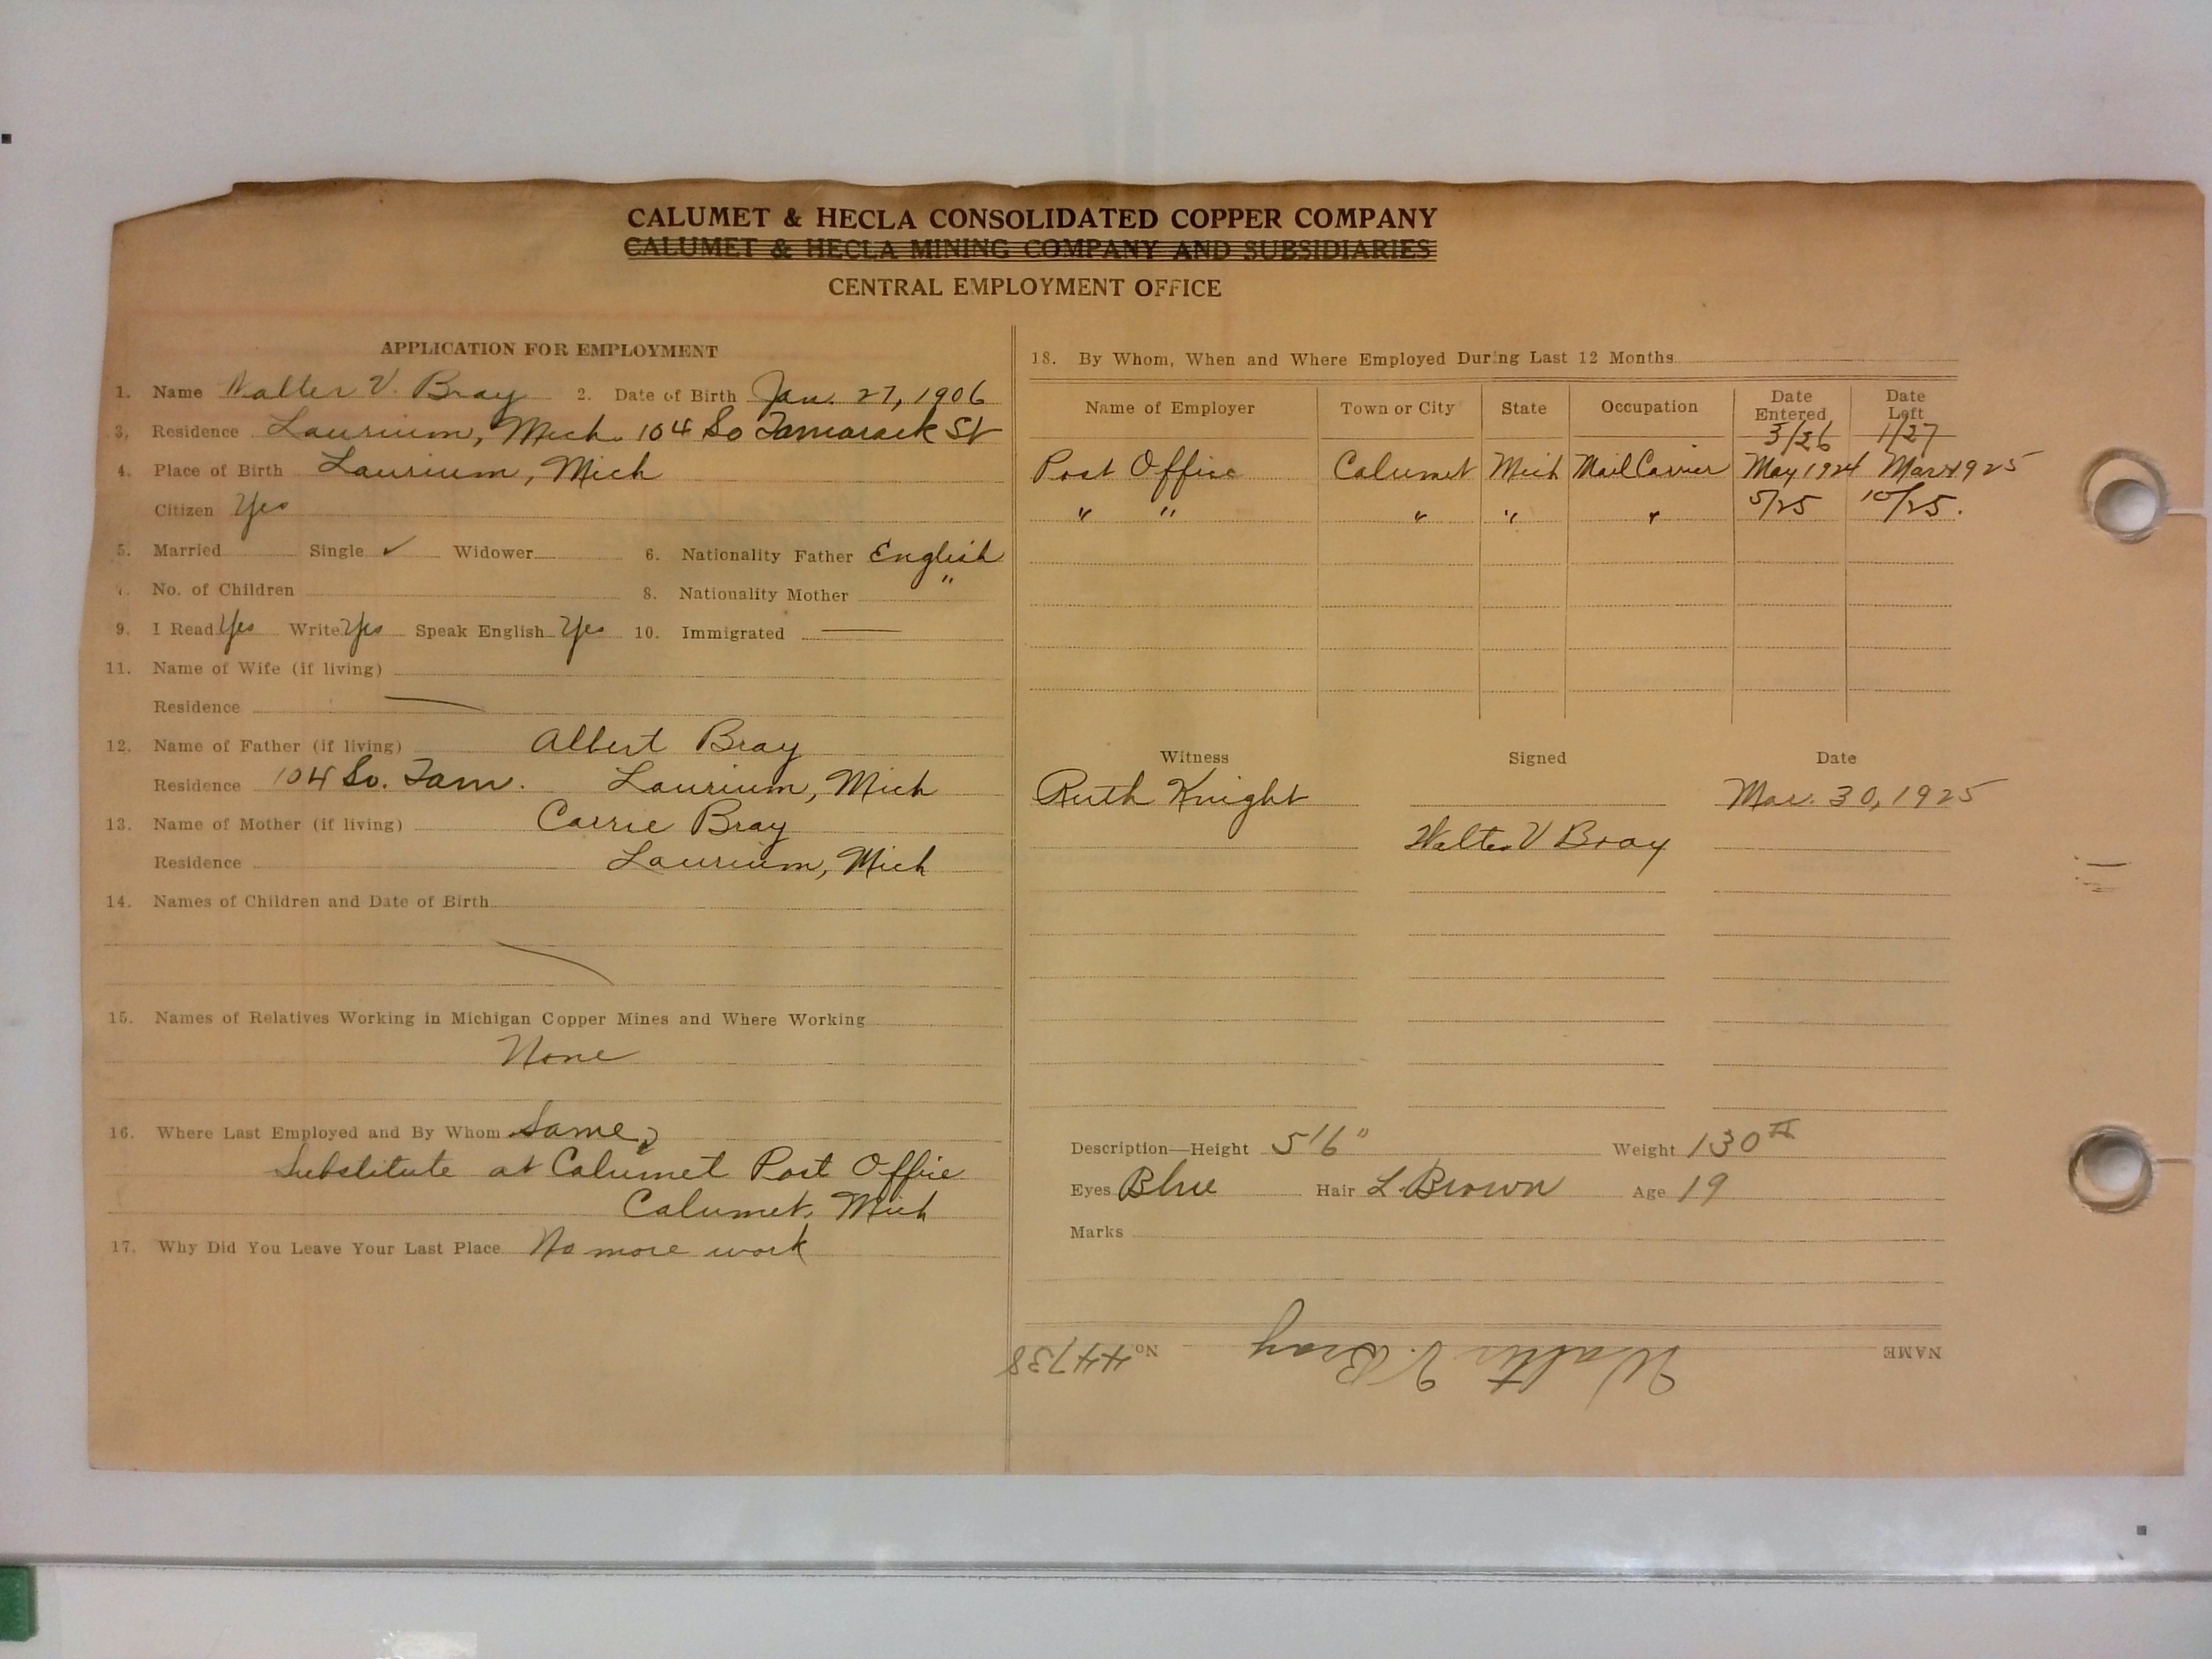 CALUMET & HECLA CONSOLIDATED COPPER COMPANY
CALUMET & HECLA MINING COMPANY AND SUBSIDIARIES
CENTRAL EMPLOYMENT OFFICE
APPLICATION FOR EMPLOYMENT
1. Name Walter V. Bray 2. Date of Birth Jan. 27, 1906
3. Residence Laurium, Mich. 104 So Tamarack St
4. Place of Birth Laurium, Mich
Citizen Yes
5. Married Single ✓ Widower 6. Nationality Father English
7. No. of Children 8. Nationality Mother "
9. I Read Yes Write Yes Speak English Yes 10. Immigrated —
11. Name of Wife (if living)
Residence —
12. Name of Father (if living) Albert Bray
Residence 104 So. Tam. Laurium, Mich
13. Name of Mother (if living) Carrie Bray
Residence Laurium, Mich
14. Names of Children and Date of Birth
15. Names of Relatives Working in Michigan Copper Mines and Where Working
None
16. Where Last Employed and By Whom Same,
Substitute at Calumet Post Office
Calumet, Mich
17. Why Did You Leave Your Last Place No more work
18. By Whom, When and Where Employed During Last 12 Months
Name of Employer Town or City State Occupation Date Entered Date Left
3/26 1/27
Post Office Calumet Mich Mail Carrier May 1924 Mar 1925
" " " " " 5/25 10/25.
Witness Signed Date
Ruth Knight Mar. 30, 1925
Walter V Bray
Description—Height 5'6" Weight 130#
Eyes Blue Hair L. Brown Age 19
Marks
NAME Walter V. Bray No. 44738